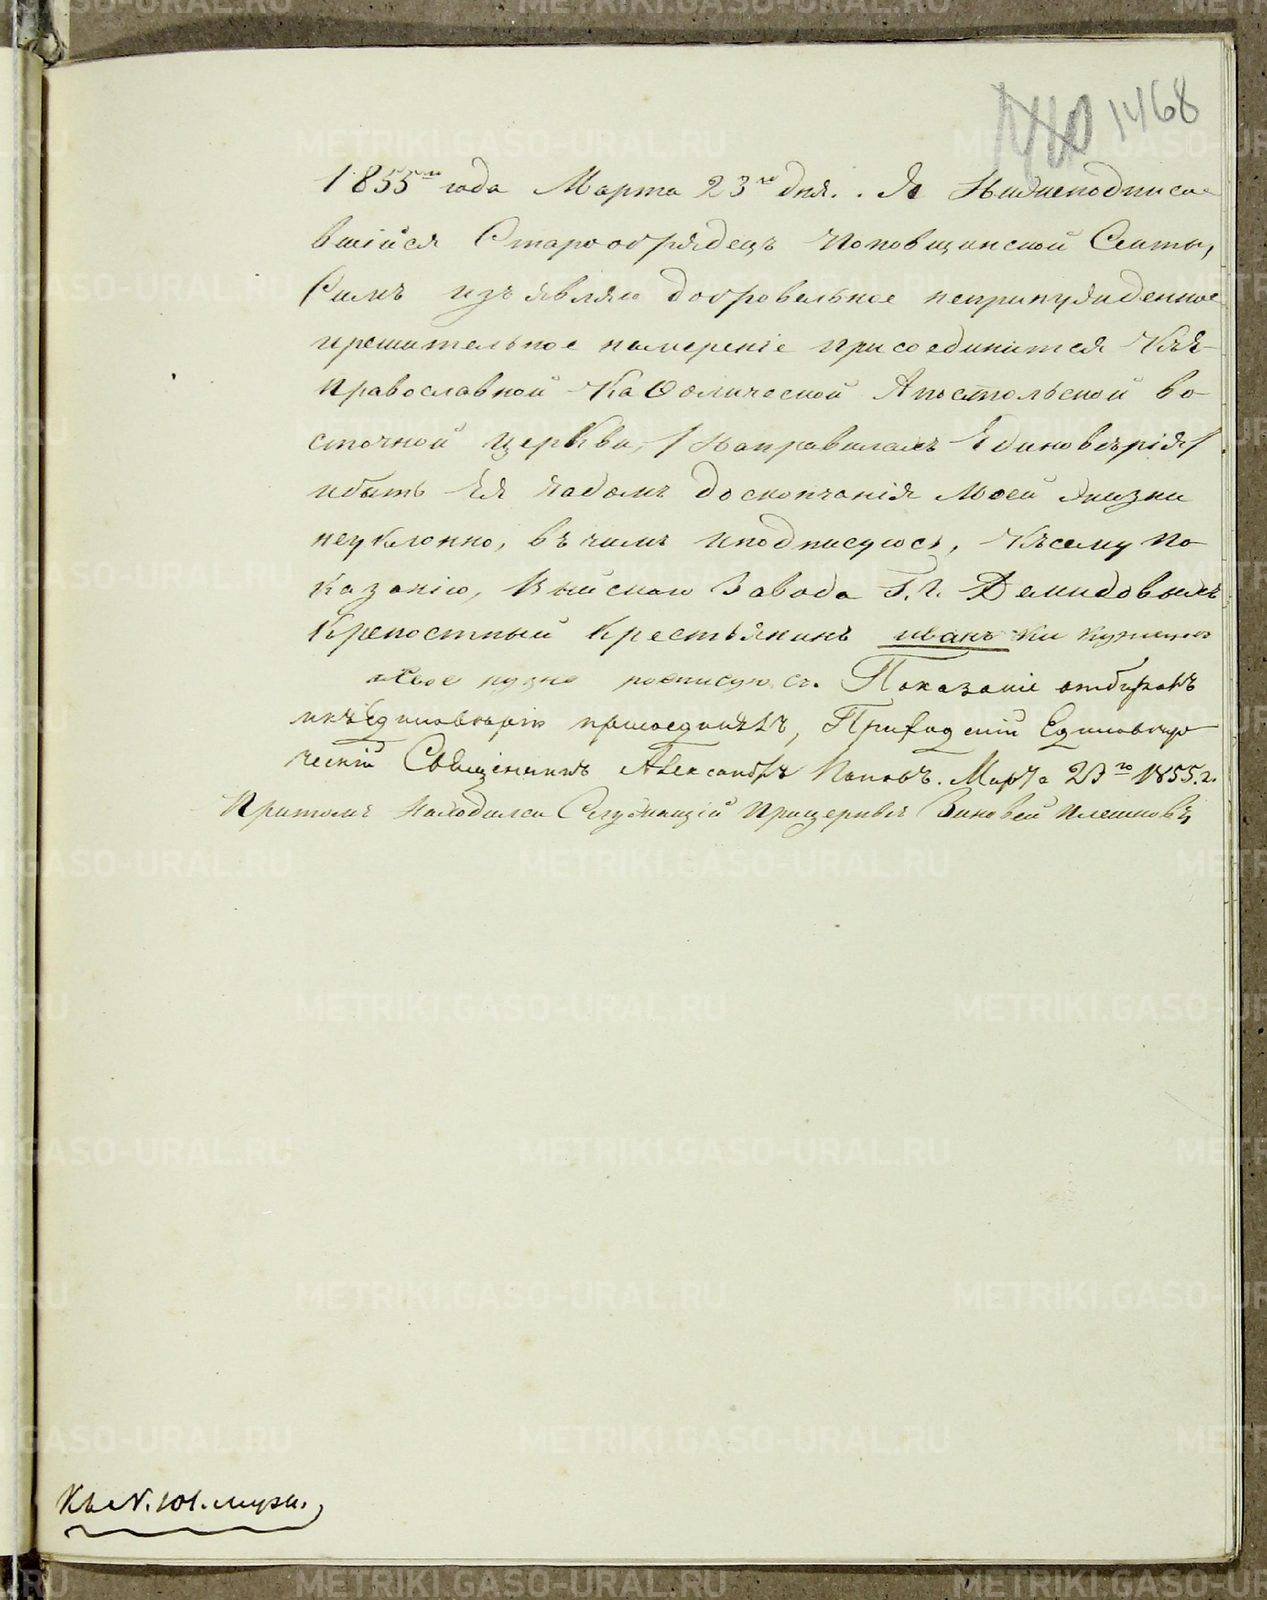 1468
1855го года Марта 23го дня. Я Нижеподписа-
вшійся Старообрядецъ Поповщинской Секты,
Симъ изъявляю добровельное непринужденное
ирешительное намереніе присоединится Къ
православной Каѳолической Апостольской во-
сточной церкви, /направилахъ Единоверія/
ибыть Ея чадомъ доскончанія Моей жизни
неуклонно, въчимъ иподписуюсь, Късему по-
казанію, Выйскаго Завода Г.г. Демидовыхъ
Крепостный крестьянинъ иванъ
Показаніе отбиралъ
икъЕдиноверію присоединялъ, Приходскій Единоверче-
ческій Священникъ Александръ Поповъ. Марта 23го 1855.г.
Притомъ Находился Служащій Прицерквѣ Зиновей Плешковъ
Къ N. 101. мужч.
METRIKI.GASO-URAL.RU